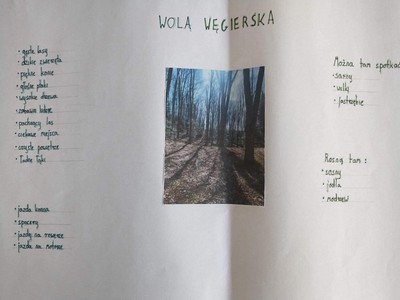 WOLA WĘGIERSKA
• gęste lasy
• dzikie zwierzęta
• piękne konie
• głośne ptaki
• wysokie drzewa
• pachnący las
• ciekawe miejsca
• czyste powietrze
• ładne łąki
• jazda konna
• spacery
• jazda na rowerze
• jazda na
Można tam spotkać
• sarny
• wilki
• jastrzębie
Rosną tam :
• sosny
• jodła
• modrzew